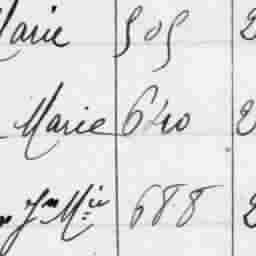 Marie 505 2
Marie 640 2
Jn Mie 688 2